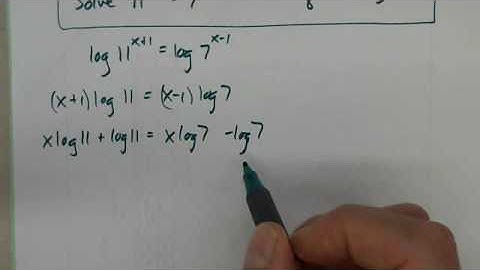 Solve
log 11^(x+1) = log 7^(x-1)
(x+1) log 11 = (x-1) log 7
x log 11 + log 11 = x log 7 - log 7